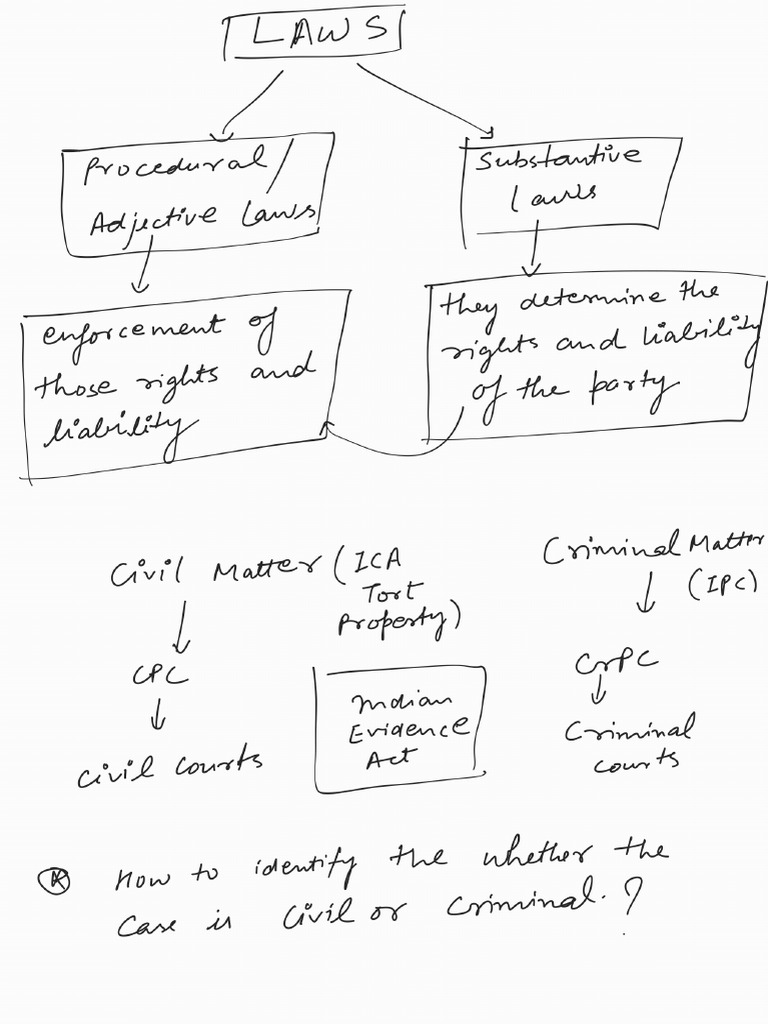 LAWS
Procedural/
Adjective Laws
Substantive
laws
enforcement of
those rights and
liability
they determine the
rights and liability
of the party
Civil Matter (ICA
Tort
Property)
CPC
Civil Courts
Indian
Evidence
Act
Criminal Matter
(IPC)
CrPC
Criminal
courts
How to identify the whether the
Case is Civil or Criminal.?